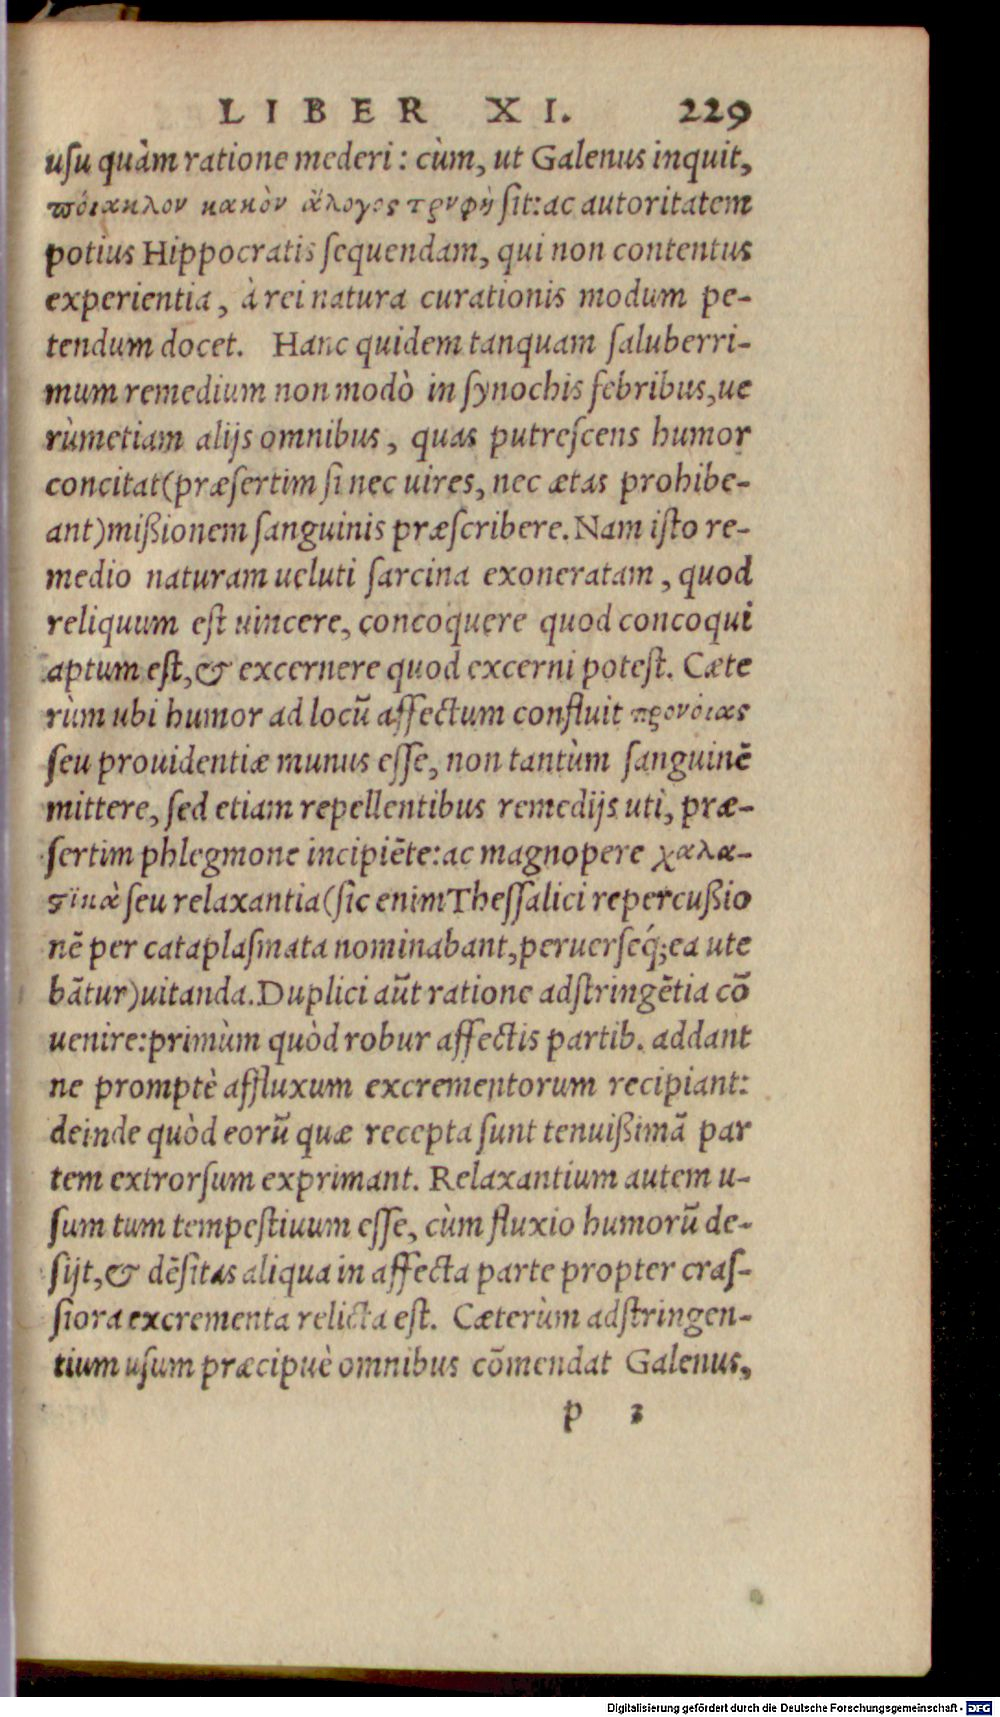 LIBER XI. 229
usu quàm ratione mederi: cùm, ut Galenus inquit,
κακὸν ἄλογος τρυφὴ sit: ac autoritatem
potius Hippocratis sequendam, qui non contentus
experientia, à rei natura curationis modum pe-
tendum docet. Hanc quidem tanquam saluberri-
mum remedium non modò in synochis febribus, ue
rùmetiam alijs omnibus, quas putrescens humor
concitat (præsertim si nec uires, nec ætas prohibe-
ant) mißionem sanguinis præscribere. Nam isto re-
medio naturam ueluti sarcina exoneratam, quod
reliquum est uincere, concoquere quod concoqui
aptum est, & excernere quod excerni potest. Cæte
rùm ubi humor ad locū affectum confluit προνοίας
seu prouidentiæ munus esse, non tantùm sanguinē
mittere, sed etiam repellentibus remedijs uti, præ-
sertim phlegmone incipiēte: ac magnopere χαλα-
ϛικὰ seu relaxantia (sic enim Thessalici repercußio
nē per cataplasmata nominabant, peruerseq́; ea ute
bātur) uitanda. Duplici aūt ratione adstringētia cō
uenire: primùm quòd robur affectis partib. addant
ne promptè affluxum excrementorum recipiant:
deinde quòd eorū quæ recepta sunt tenuißimā par
tem extrorsum exprimant. Relaxantium autem u-
sum tum tempestiuum esse, cùm fluxio humorū de-
sijt, & dēsitas aliqua in affecta parte propter cras-
siora excrementa relicta est. Cæterùm adstringen-
tium usum præcipuè omnibus cōmendat Galenus,
p 3
Digitalisierung gefördert durch die Deutsche Forschungsgemeinschaft - DFG